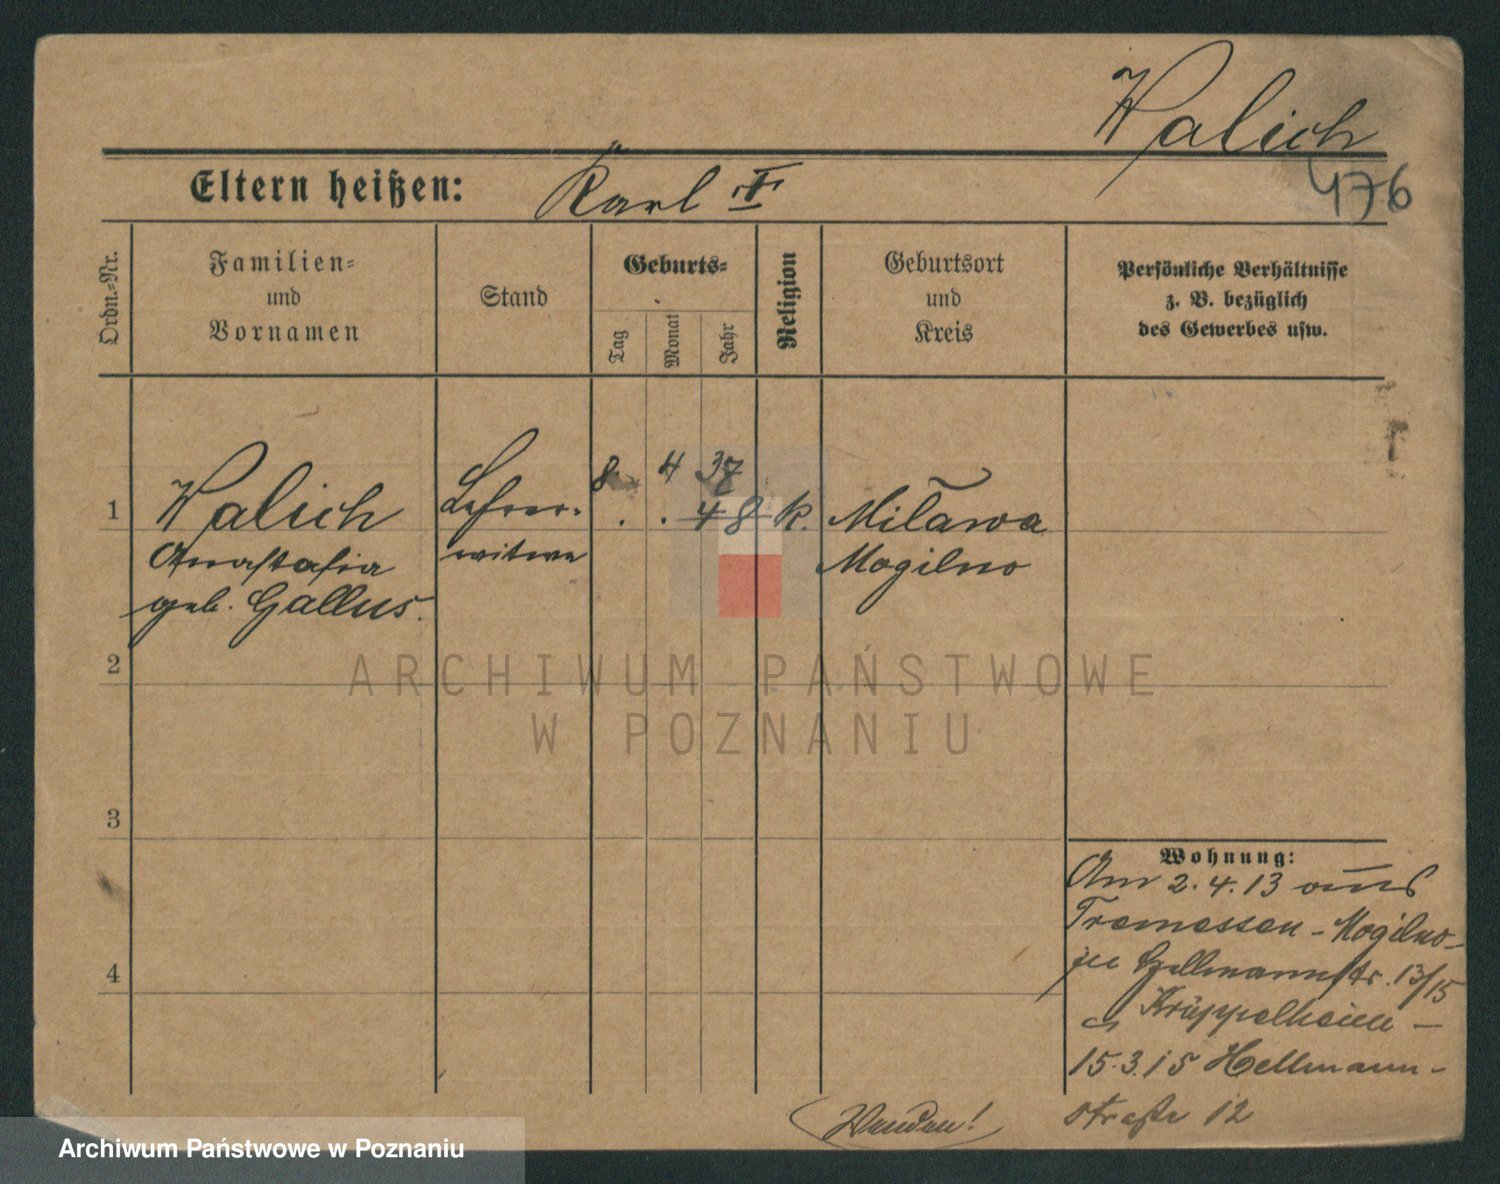 Walich
476
Eltern heißen: Karl I
Ordn.-Nr.
Familien-
und
Vornamen
Stand
Geburts-
Tag
Monat
Jahr
Religion
Geburtsort
und
Kreis
Persönliche Verhältnisse
z. B. bezüglich
des Gewerbes usw.
1
Walich
Anastasia
geb. Gallus.
Lehrer-
witwe
8. 4 37
. . 48
k.
Milawa
Mogilno
2
ARCHIWUM PAŃSTWOWE
W POZNANIU
3
4
Wohnung:
Am 2.4.13 aus
Tremessen - Mogilno -
zu Hellmannstr. 13/15
Krüppelheim -
15.3.15 Hellmann-
straße 12
Wenden!
Archiwum Państwowe w Poznaniu